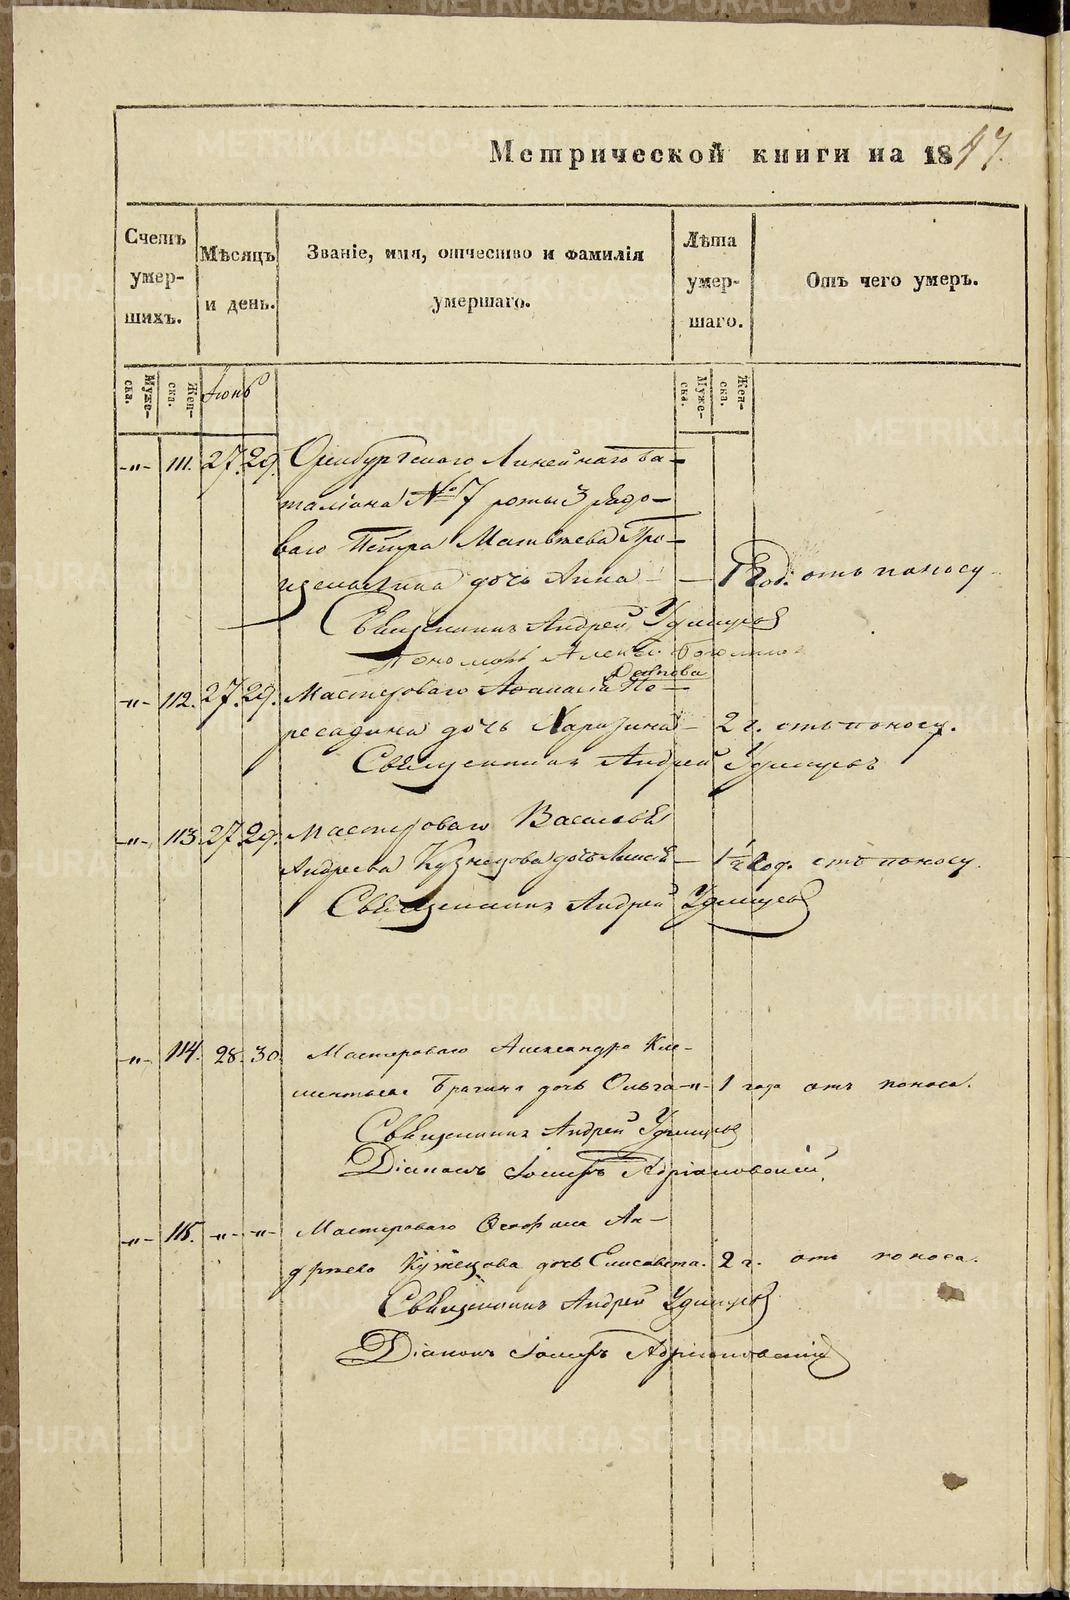 Метрической книги на 1847.
Счетъ умер-шихъ.
Мѣсяцъ и день.
Званіе, имя, отчество и фамилія умершаго.
Лѣта умер-шаго.
Отъ чего умеръ.
Муже-ска.
Жен-ска.
Іюнь
Муже-ска.
Жен-ска.
-"- 111. 27. 29. Оренбургскаго Линейнаго ба-
таліона № 7 роты 3 рядо-
ваго Петра Матвѣева
дочь Анна - - 1 год. отъ поносу
Священникъ Андрей Удинцовъ
Пономарь Алексѣй
-"- 112. 27. 29. Мастероваго Аѳанасія По-
ресадина дочь Харитина - 2 г. отъ поносу.
Священникъ Андрей Удинцовъ
-"- 113. 27. 29. Мастероваго Василья
Андреева Кузнецова дочь - 1/2 год. отъ поносу.
Священникъ Андрей Удинцовъ
-"- 114. 28. 30. Мастероваго Александра Кле-
ментьева Брагина дочь Ольга -"- 1 года отъ поноса.
Священникъ Андрей Удинцовъ
Діаконъ Іосифъ Адріановскій
-"- 115. -"- -"- Мастероваго Ан-
дреева Кузнецова дочь Елисавета. 2 г. отъ поноса.
Священникъ Андрей Удинцовъ
Діаконъ Іосифъ Адріановскій
METRIKI.GASO-URAL.RU